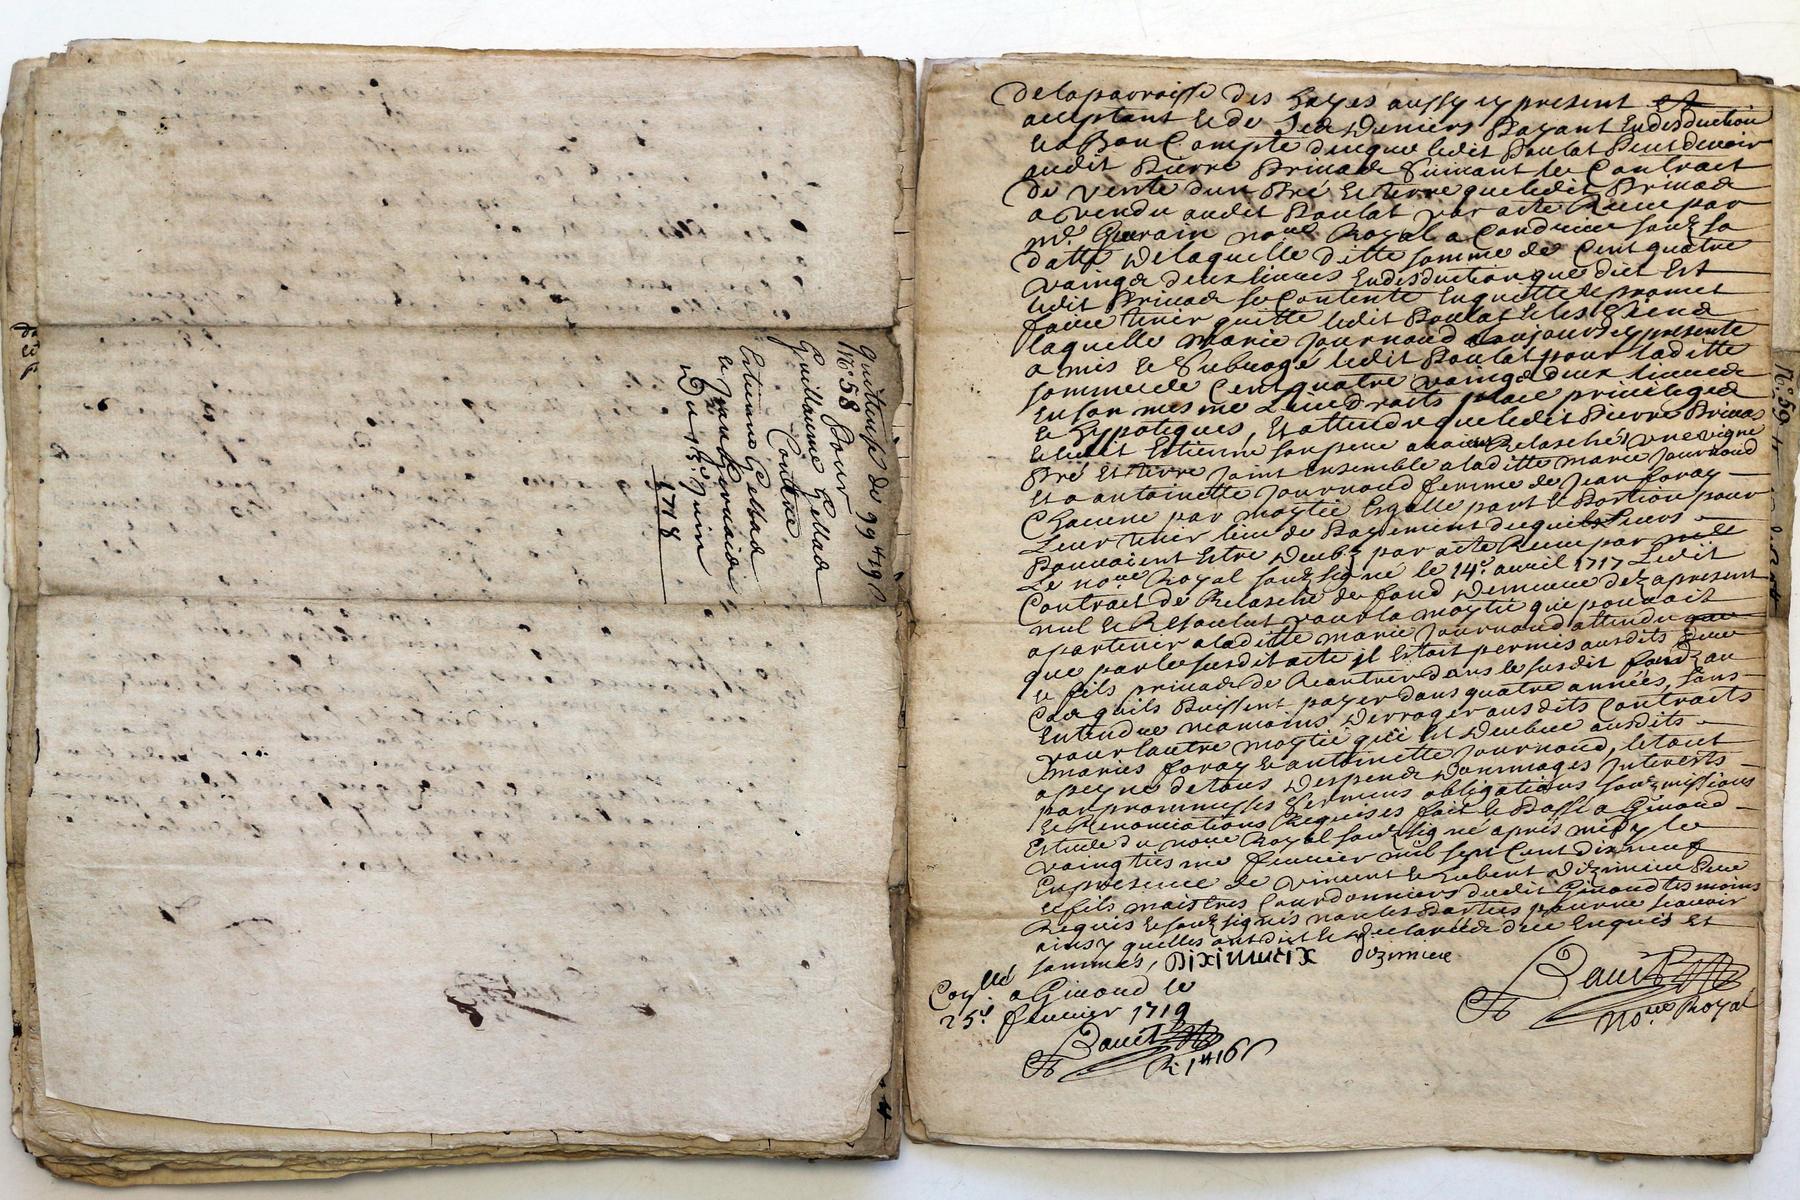 Quittance de 99tt 19s
N.º 58 Pour
Guillaume Gellad
Contre
Estienne Gellad
& Jean
Du 15.e Juin
1718
N.º 59
de la parroisse des hayes aussy icy present et
acceptant & de ses deniers payant en desduction
& a bon Compte de ce que ledit Poulat peut devoir
audit Pierre Privad suivant le Contrait
de vente d'un Pré & terre que ledit Privad
a vendu audit Poulat par acte Receu par
m.e Guerain no.re Royal a Condrieu soubz sa
datte de laquelle ditte somme de Cent quatre
vaingt deux livres en desduction que dict est
ledit Privad se Contente en quitte & promet
faire tenir quitte ledit Poulat & les siens
laquelle marie Journoud icy presente
a mis & subrogé ledit Poulat pour laditte
somme de Cent quatre vaingt deux livres
en son mesme lieu droits place privileges
& hypoteques, et attendu que ledit Pierre Privad
& ledit Estienne son pere avoient Relasché une vigne
Pré et terre joint ensemble a laditte marie Journoud
et a antoinette Journoud femme de Jean foray
Chacune par moytié Esgalle part & Portion pour
Leur tenir lieu de Payement de ce qui leurs
Pouvoient Estre deubz par acte Receu par
Le no.re Royal soubzsigné le 14.e avril 1717 Ledit
Contrait de Relasche de fond demeure dez a present
nul & Resoulut pour la moytié que pouvoit
apartenir a laditte marie Journoud attendu
que par le susdit acte il Estoit permis ausdits Pere
& fils privad de Rentrer dans le susdit fondz au
Cas quils Puyssent payer dans quatre années, sans
Entendre neamoins derroger ausdits Contraits
pour lautre moytié qui est deubue ausdits
mariés foray & antoinette Journoud, le tout
a peyne de tous despends dommages Interests
par prommesses sermens obligations soubzmissions
& Renonciations Requises fait & Passé a Givord
Estude du no.re Royal soubzsigné après midy le
vaingtiesme febvrier mil sept Cent dix neuf
En presence de vincent & hubert Dizimieu Pere
& fils maistres Courdonniers dudit Givord tesmoins
Requis & soubzsignés non les Parties pour ne scavoir
ainsy quelles ont dict & declarées de ce Enquis et
sommés, Diximieux diximieu
Co.llé a Givord le
25.e febvrier 1719
no.re Royal
R. 1tt 16s